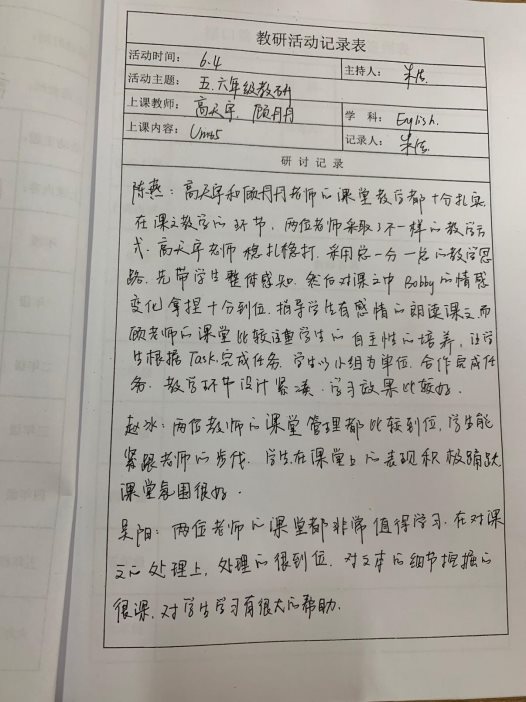 教研活动记录表
活动时间: 6.4 主持人:
活动主题: 五.六年级教研
上课教师: 高天宇. 顾丹丹 学 科: English.
上课内容: Unit5 记录人:
研 讨 记 录
陈燕: 高天宇和顾丹丹老师的课堂教学都十分扎实
在课文教学的环节, 两位老师采取了不一样的教学方
式. 高天宇老师稳扎稳打. 采用总一分一总的教学思
路. 先带学生整体感知. 然后对课文中 Bobby的情感
变化拿捏十分到位. 指导学生有感情的朗读课文. 而
顾老师的课堂比较注重学生的自主性的培养, 让学
生根据Task.完成任务. 学生以小组为单位. 合作完成任
务. 教学环节设计紧凑. 学习效果比较好.
赵冰: 两位教师的课堂管理都比较到位, 学生能
紧跟老师的步伐. 学生在课堂上的表现积极踊跃
课堂氛围很好.
吴阳: 两位老师的课堂都非常值得学习. 在对课
文的处理上, 处理的很到位. 对文本的细节挖掘的
很课. 对学生学习有很大的帮助.